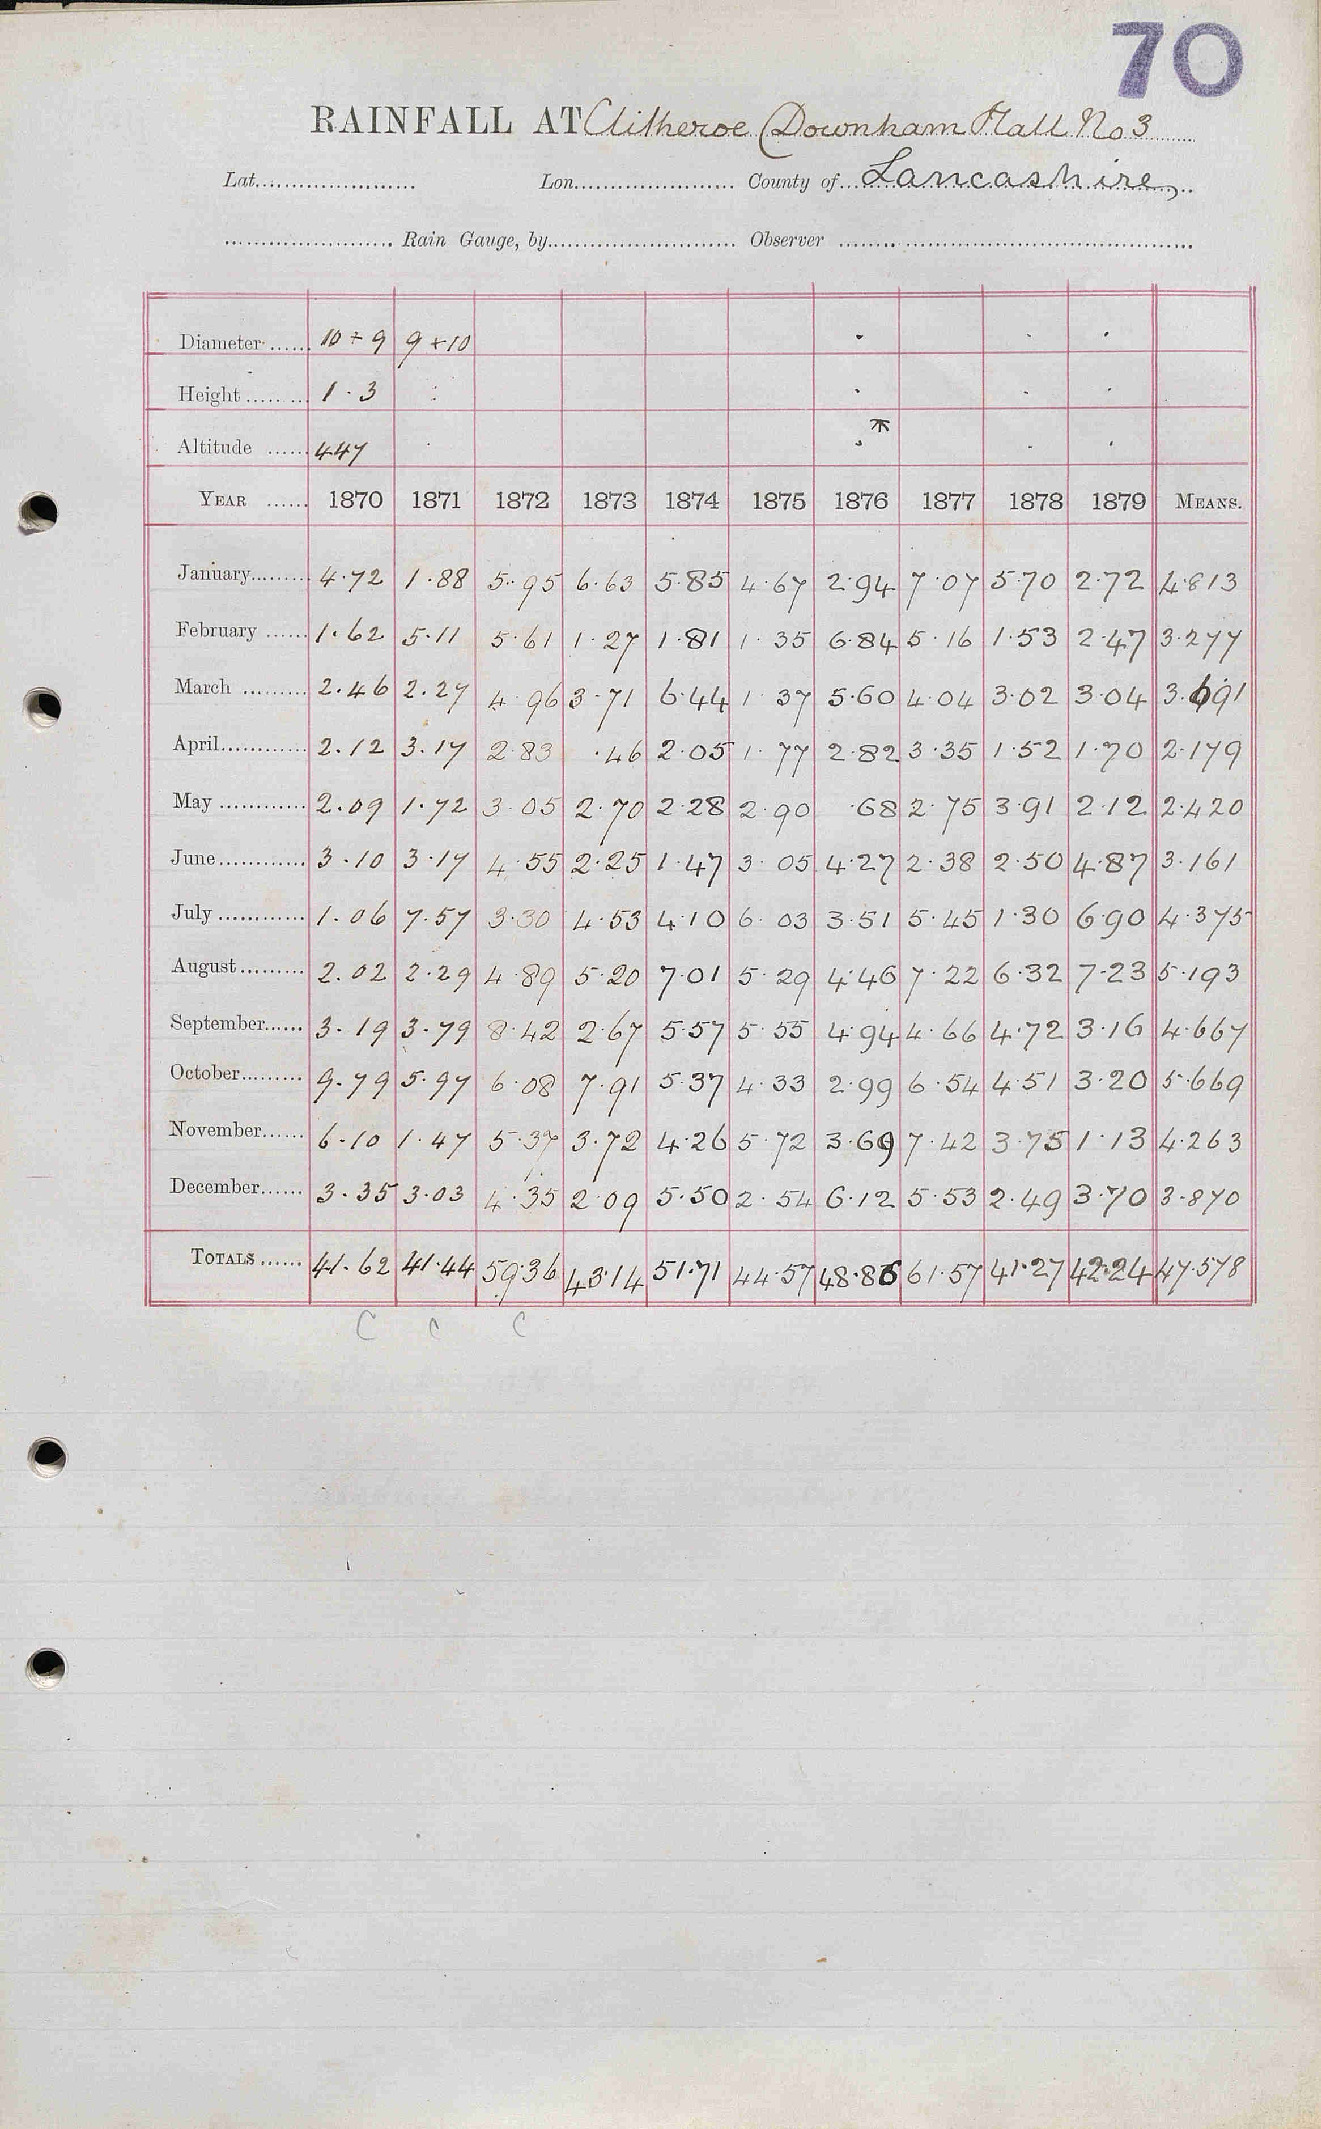 70
RAINFALL AT Clitheroe (Downham Hall No 3
Lat. Lon. County of Lancashire,
Rain Gauge, by Observer
Diameter 10 + 9 9 + 10
Height 1 · 3
Altitude 447
YEAR 1870 1871 1872 1873 1874 1875 1876 1877 1878 1879 MEANS.
January 4·72 1·88 5·95 6·63 5·85 4·67 2·94 7·07 5·70 2·72 4·813
February 1·62 5·11 5·61 1·27 1·81 1·35 6·84 5·16 1·53 2·47 3·277
March 2·46 2·27 4·96 3·71 6·44 1·37 5·60 4·04 3·02 3·04 3·691
April 2·12 3·17 2·83 ·46 2·05 1·77 2·82 3·35 1·52 1·70 2·179
May 2·09 1·72 3·05 2·70 2·28 2·90 ·68 2·75 3·91 2·12 2·420
June 3·10 3·17 4·55 2·25 1·47 3·05 4·27 2·38 2·50 4·87 3·161
July 1·06 7·57 3·30 4·53 4·10 6·03 3·51 5·45 1·30 6·90 4·375
August 2·02 2·29 4·89 5·20 7·01 5·29 4·46 7·22 6·32 7·23 5·193
September 3·19 3·79 8·42 2·67 5·57 5·55 4·94 4·66 4·72 3·16 4·667
October 9·79 5·97 6·08 7·91 5·37 4·33 2·99 6·54 4·51 3·20 5·669
November 6·10 1·47 5·37 3·72 4·26 5·72 3·69 7·42 3·75 1·13 4·263
December 3·35 3·03 4·35 2·09 5·50 2·54 6·12 5·53 2·49 3·70 3·870
TOTALS 41·62 41·44 59·36 43·14 51·71 44·57 48·86 61·57 41·27 42·24 47·578
C C C